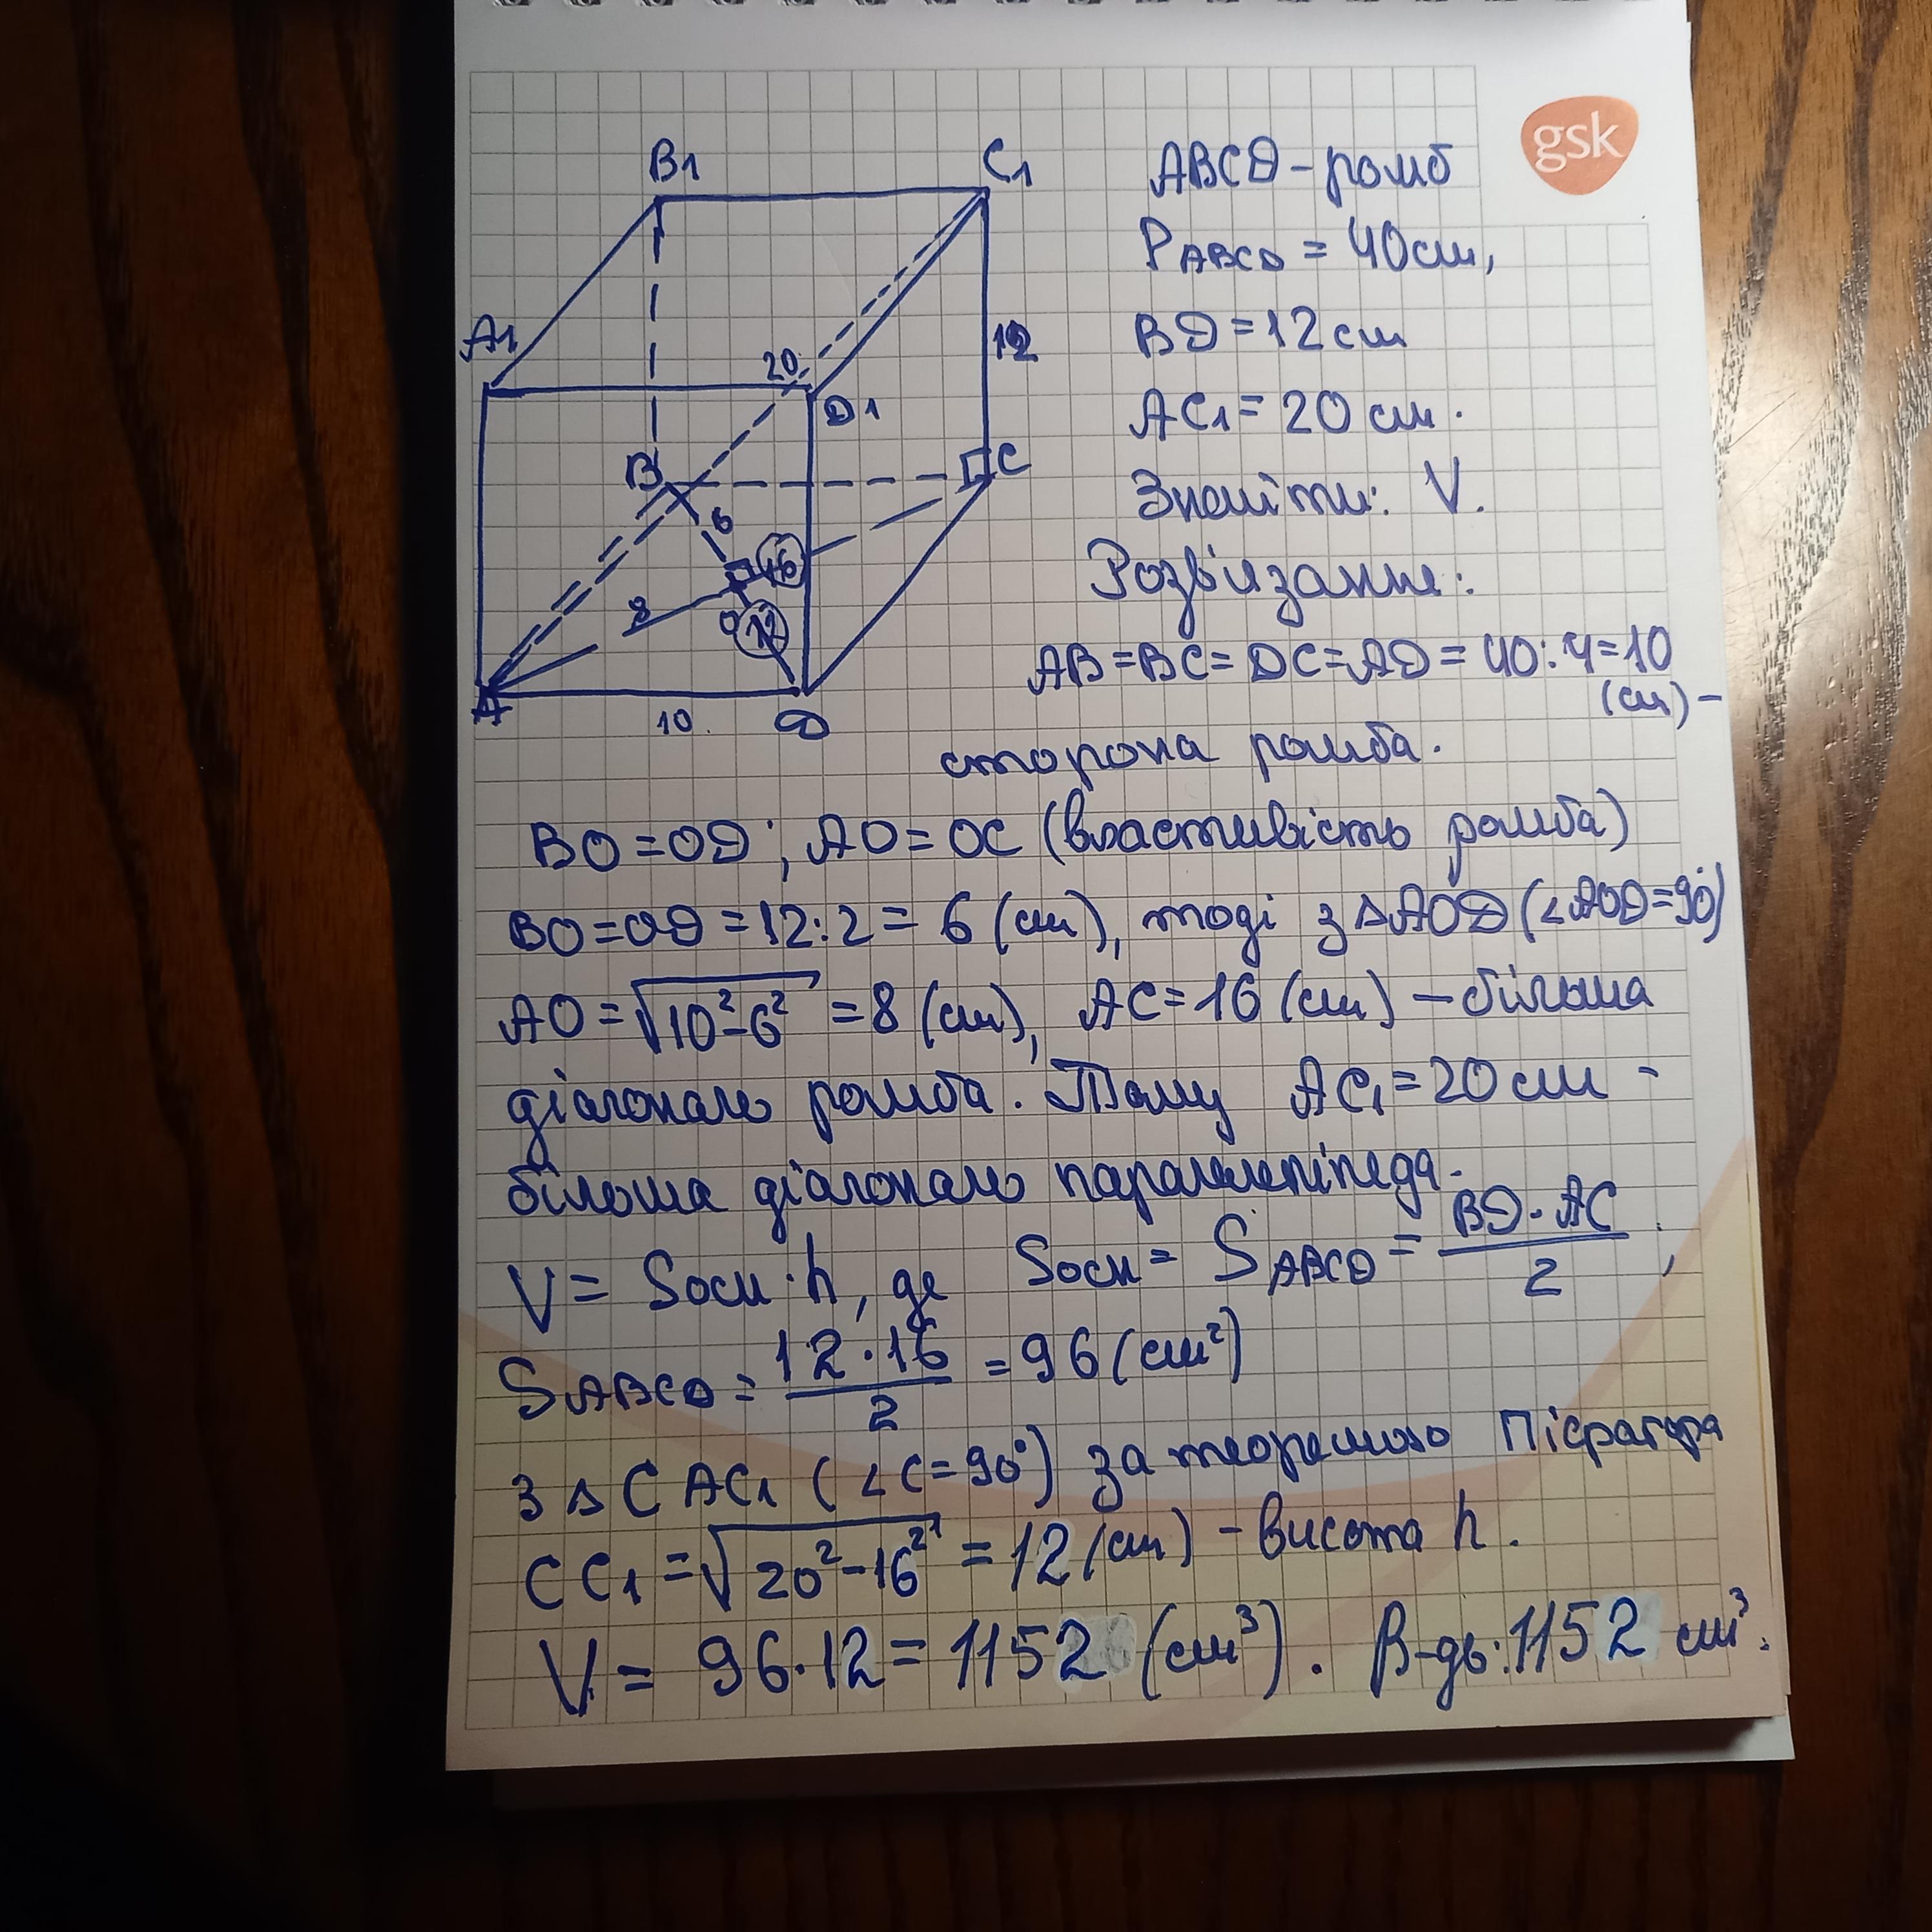 gsk
B1
C1
A1
20
D1
12
B
C
6
16
8
O
12
A
10
D
ABCD - ромб
P ABCD = 40 см,
BD = 12 см
AC1 = 20 см.
Знайти: V.
Розв'язання:
AB = BC = DC = AD = 40 : 4 = 10
(см) -
сторона ромба.
BO = OD; AO = OC (властивість ромба)
BO = OD = 12 : 2 = 6 (см), тоді з ΔAOD (∠AOD = 90°)
AO = √10² - 6² = 8 (см), AC = 16 (см) - більша
діагональ ромба. Тому AC1 = 20 см -
більша діагональ паралелепіпеда.
V = Sосн · h, де Sосн = S ABCD = BD · AC / 2,
S ABCD = 12 · 16 / 2 = 96 (см²)
з Δ CAC1 (∠C = 90°) за теоремою Піфагора
CC1 = √20² - 16² = 12 (см) - висота h.
V = 96 · 12 = 1152 (см³). В-дь: 1152 см³.